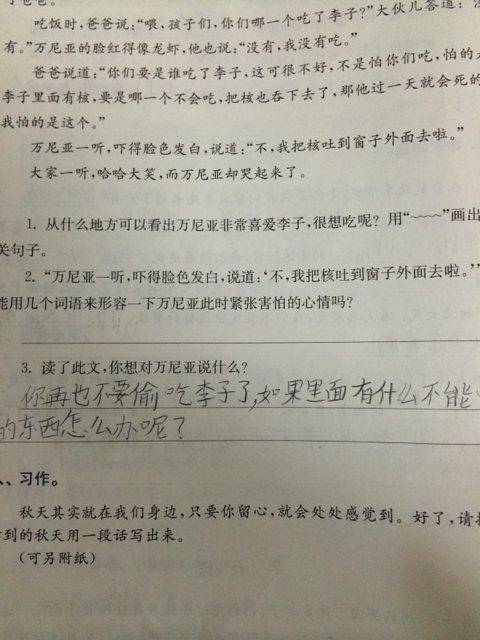 吃饭时,爸爸说:“喂,孩子们,你们哪一个吃了李子?”大伙儿答道:
有。”万尼亚的脸红得像龙虾,他也说:“没有,我没有吃。”
爸爸说道:“你们要是谁吃了李子,这可很不好,不是怕你们吃,怕的
李子里面有核,要是哪一个不会吃,把核也吞下去了,那他过一天就会死的
我怕的是这个。”
万尼亚一听,吓得脸色发白,说道:“不,我把核吐到窗子外面去啦。”
大家一听,哈哈大笑,而万尼亚却哭起来了。
1. 从什么地方可以看出万尼亚非常喜爱李子,很想吃呢?用“﹏﹏”画出
关句子。
2. “万尼亚一听,吓得脸色发白,说道:‘不,我把核吐到窗子外面去啦。’”
能用几个词语来形容一下万尼亚此时紧张害怕的心情吗?
3. 读了此文,你想对万尼亚说什么?
你再也不要偷吃李子了,如果里面有什么不能
的东西怎么办呢?
、习作。
秋天其实就在我们身边,只要你留心,就会处处感觉到。好了,请
到的秋天用一段话写出来。
(可另附纸)